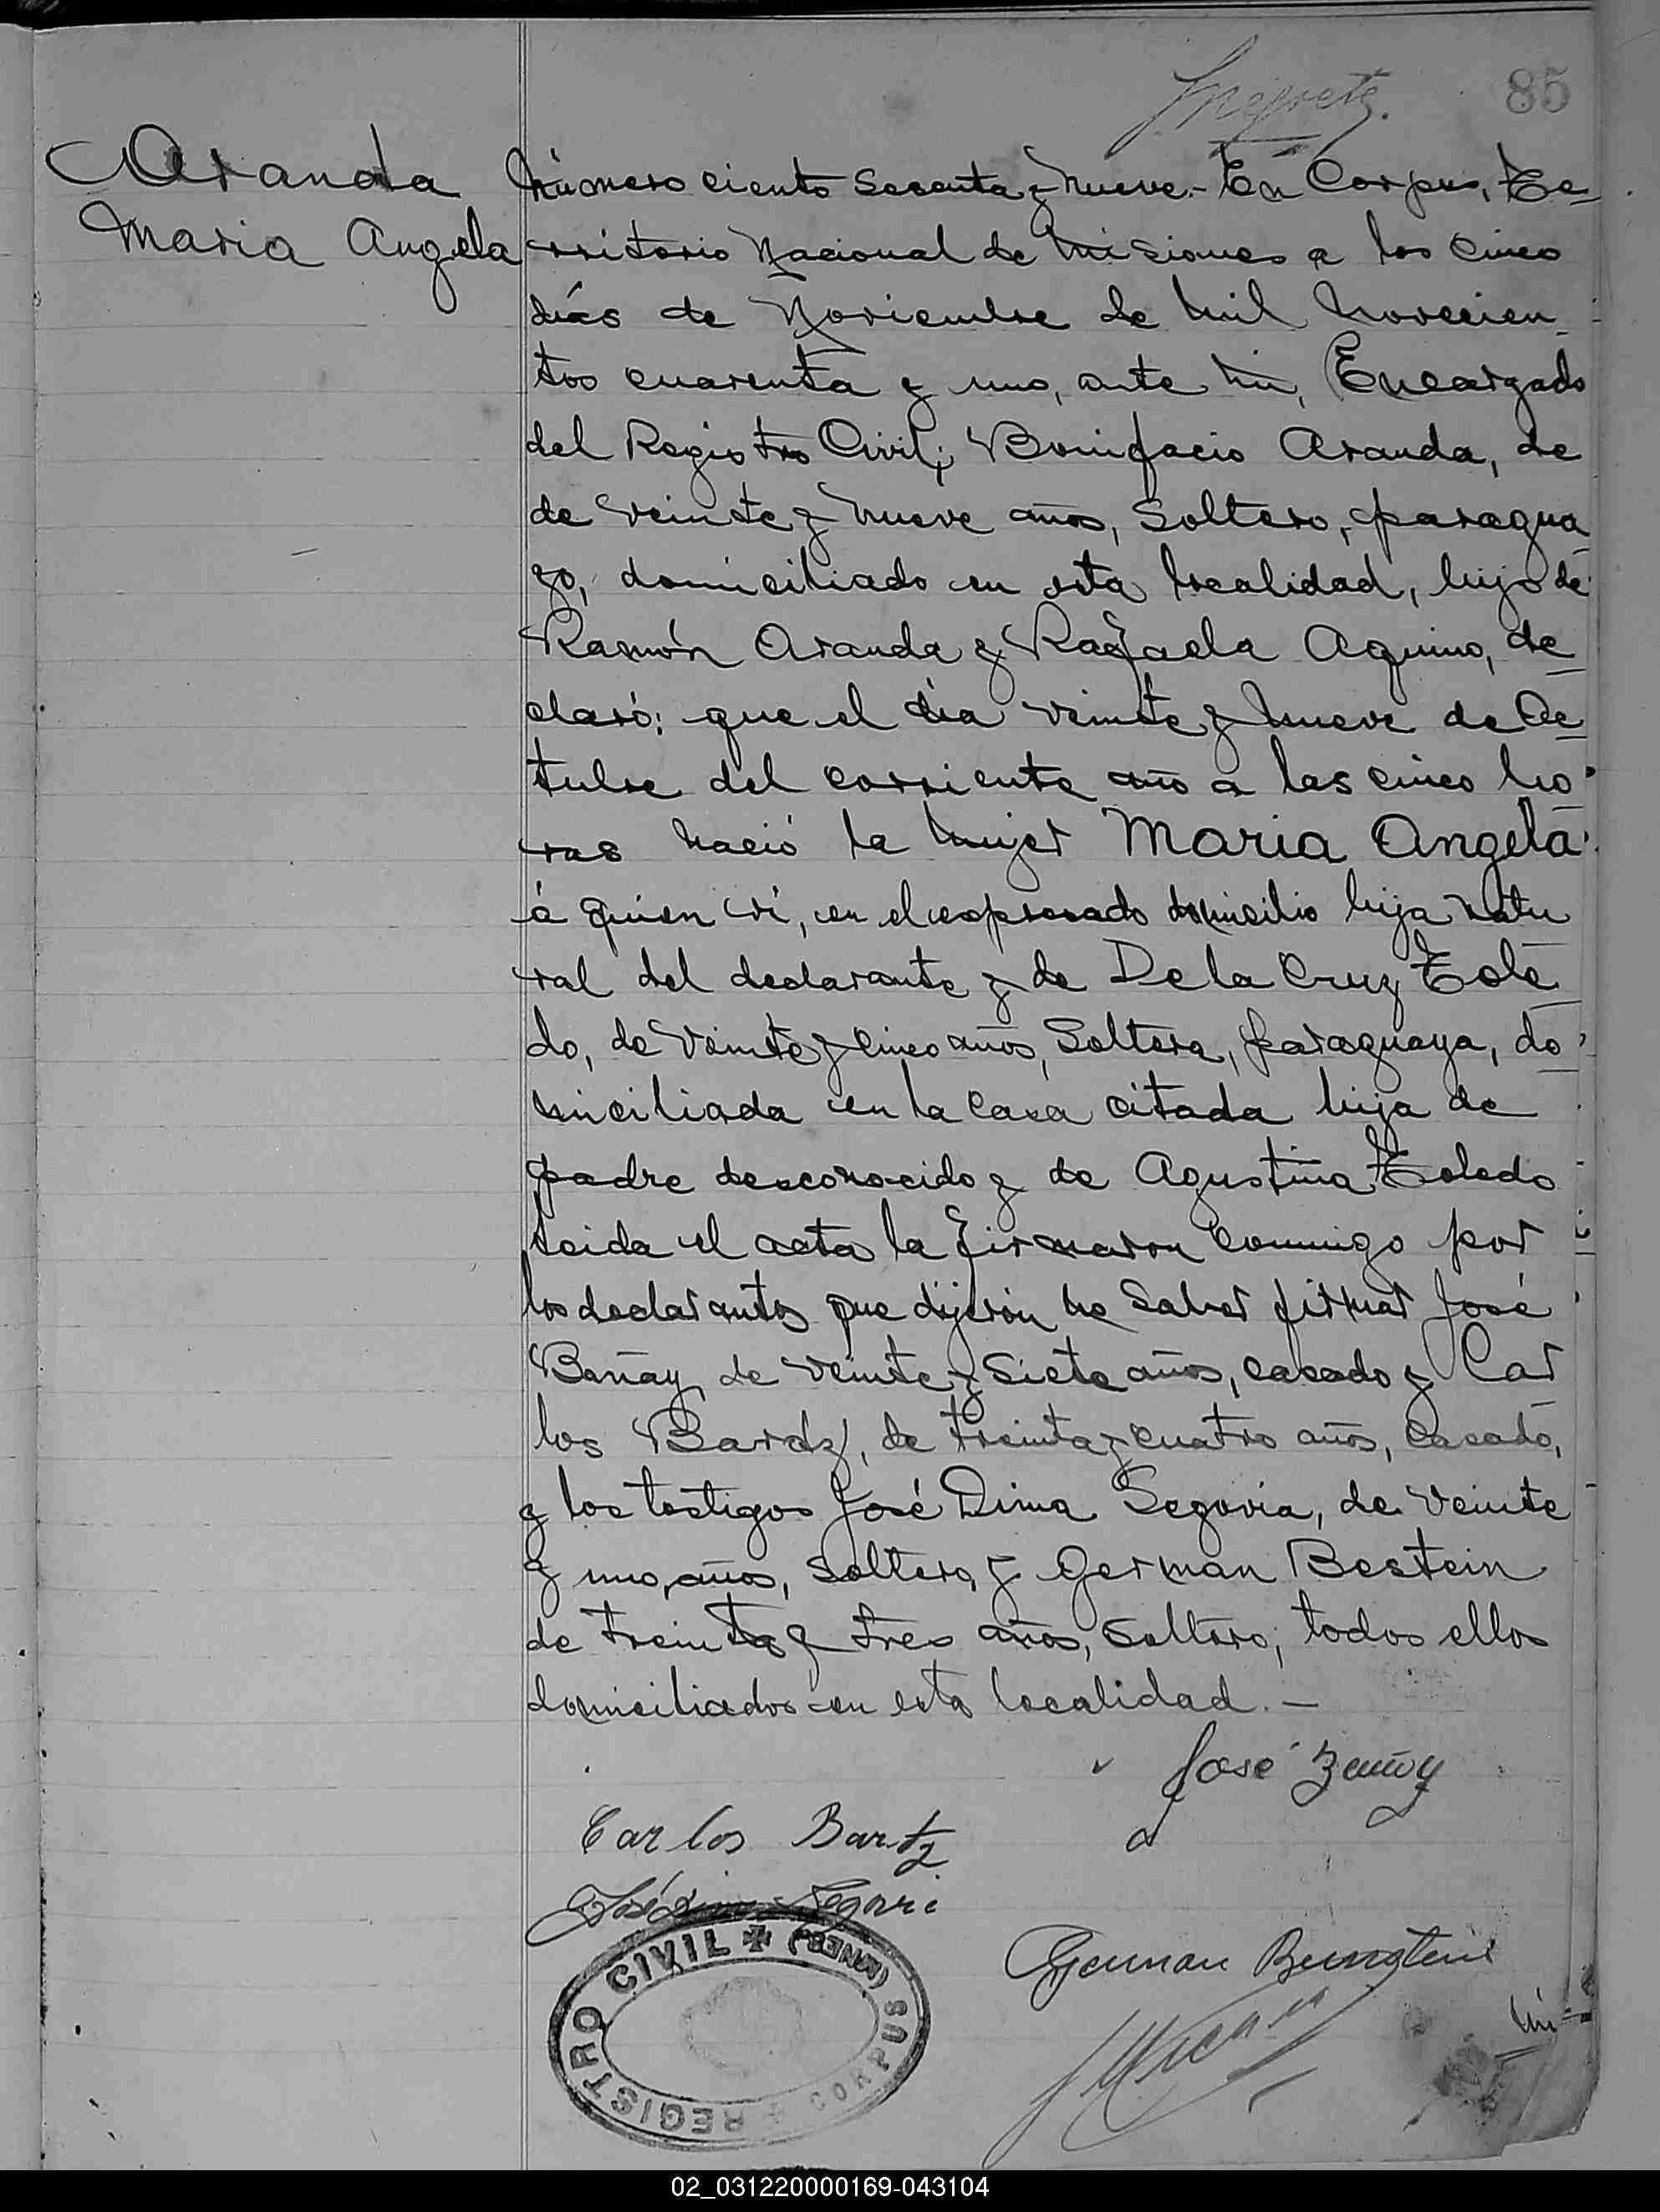 85
Aranda
Maria Angela
Número ciento sesenta y nueve.- En Corpus, Te-
rritorio Nacional de Misiones a los cinco
días de Noviembre de mil novecien-
tos cuarenta y uno, ante mi, Encargado
del Registro Civil; Bonifacio Aranda, de
de veinte y nueve años, soltero, paragua-
yo, domiciliado en esta localidad, hijo de
Ramón Aranda y Rafaela Aquino, de-
claró: que el día veinte y nueve de Oc-
tubre del corriente año a las cinco ho-
ras nació la mujer Maria Angela
á quien vi, en el expresado domicilio hija natu-
ral del declarante y de De la Cruz Tole-
do, de veinte y cinco años, soltera, paraguaya, do-
miciliada en la casa citada hija de
padre desconocido y de Agustina Toledo
Leida el acta la firmaron conmigo por
los declarantes que dijeron no saber firmar José
Bañay, de veinte y siete años, casado y Car
los Bardz, de treinta y cuatro años, casado,
y los testigos José Dima Segovia, de veinte
y uno, años, soltero, y German Bestein
de treinta y tres años, soltero; todos ellos
domiciliados en esta localidad.-
José
Carlos Bartz
José
German
REGISTRO CIVIL ✠ (MNES.) CORPUS ✠
02_031220000169-043104